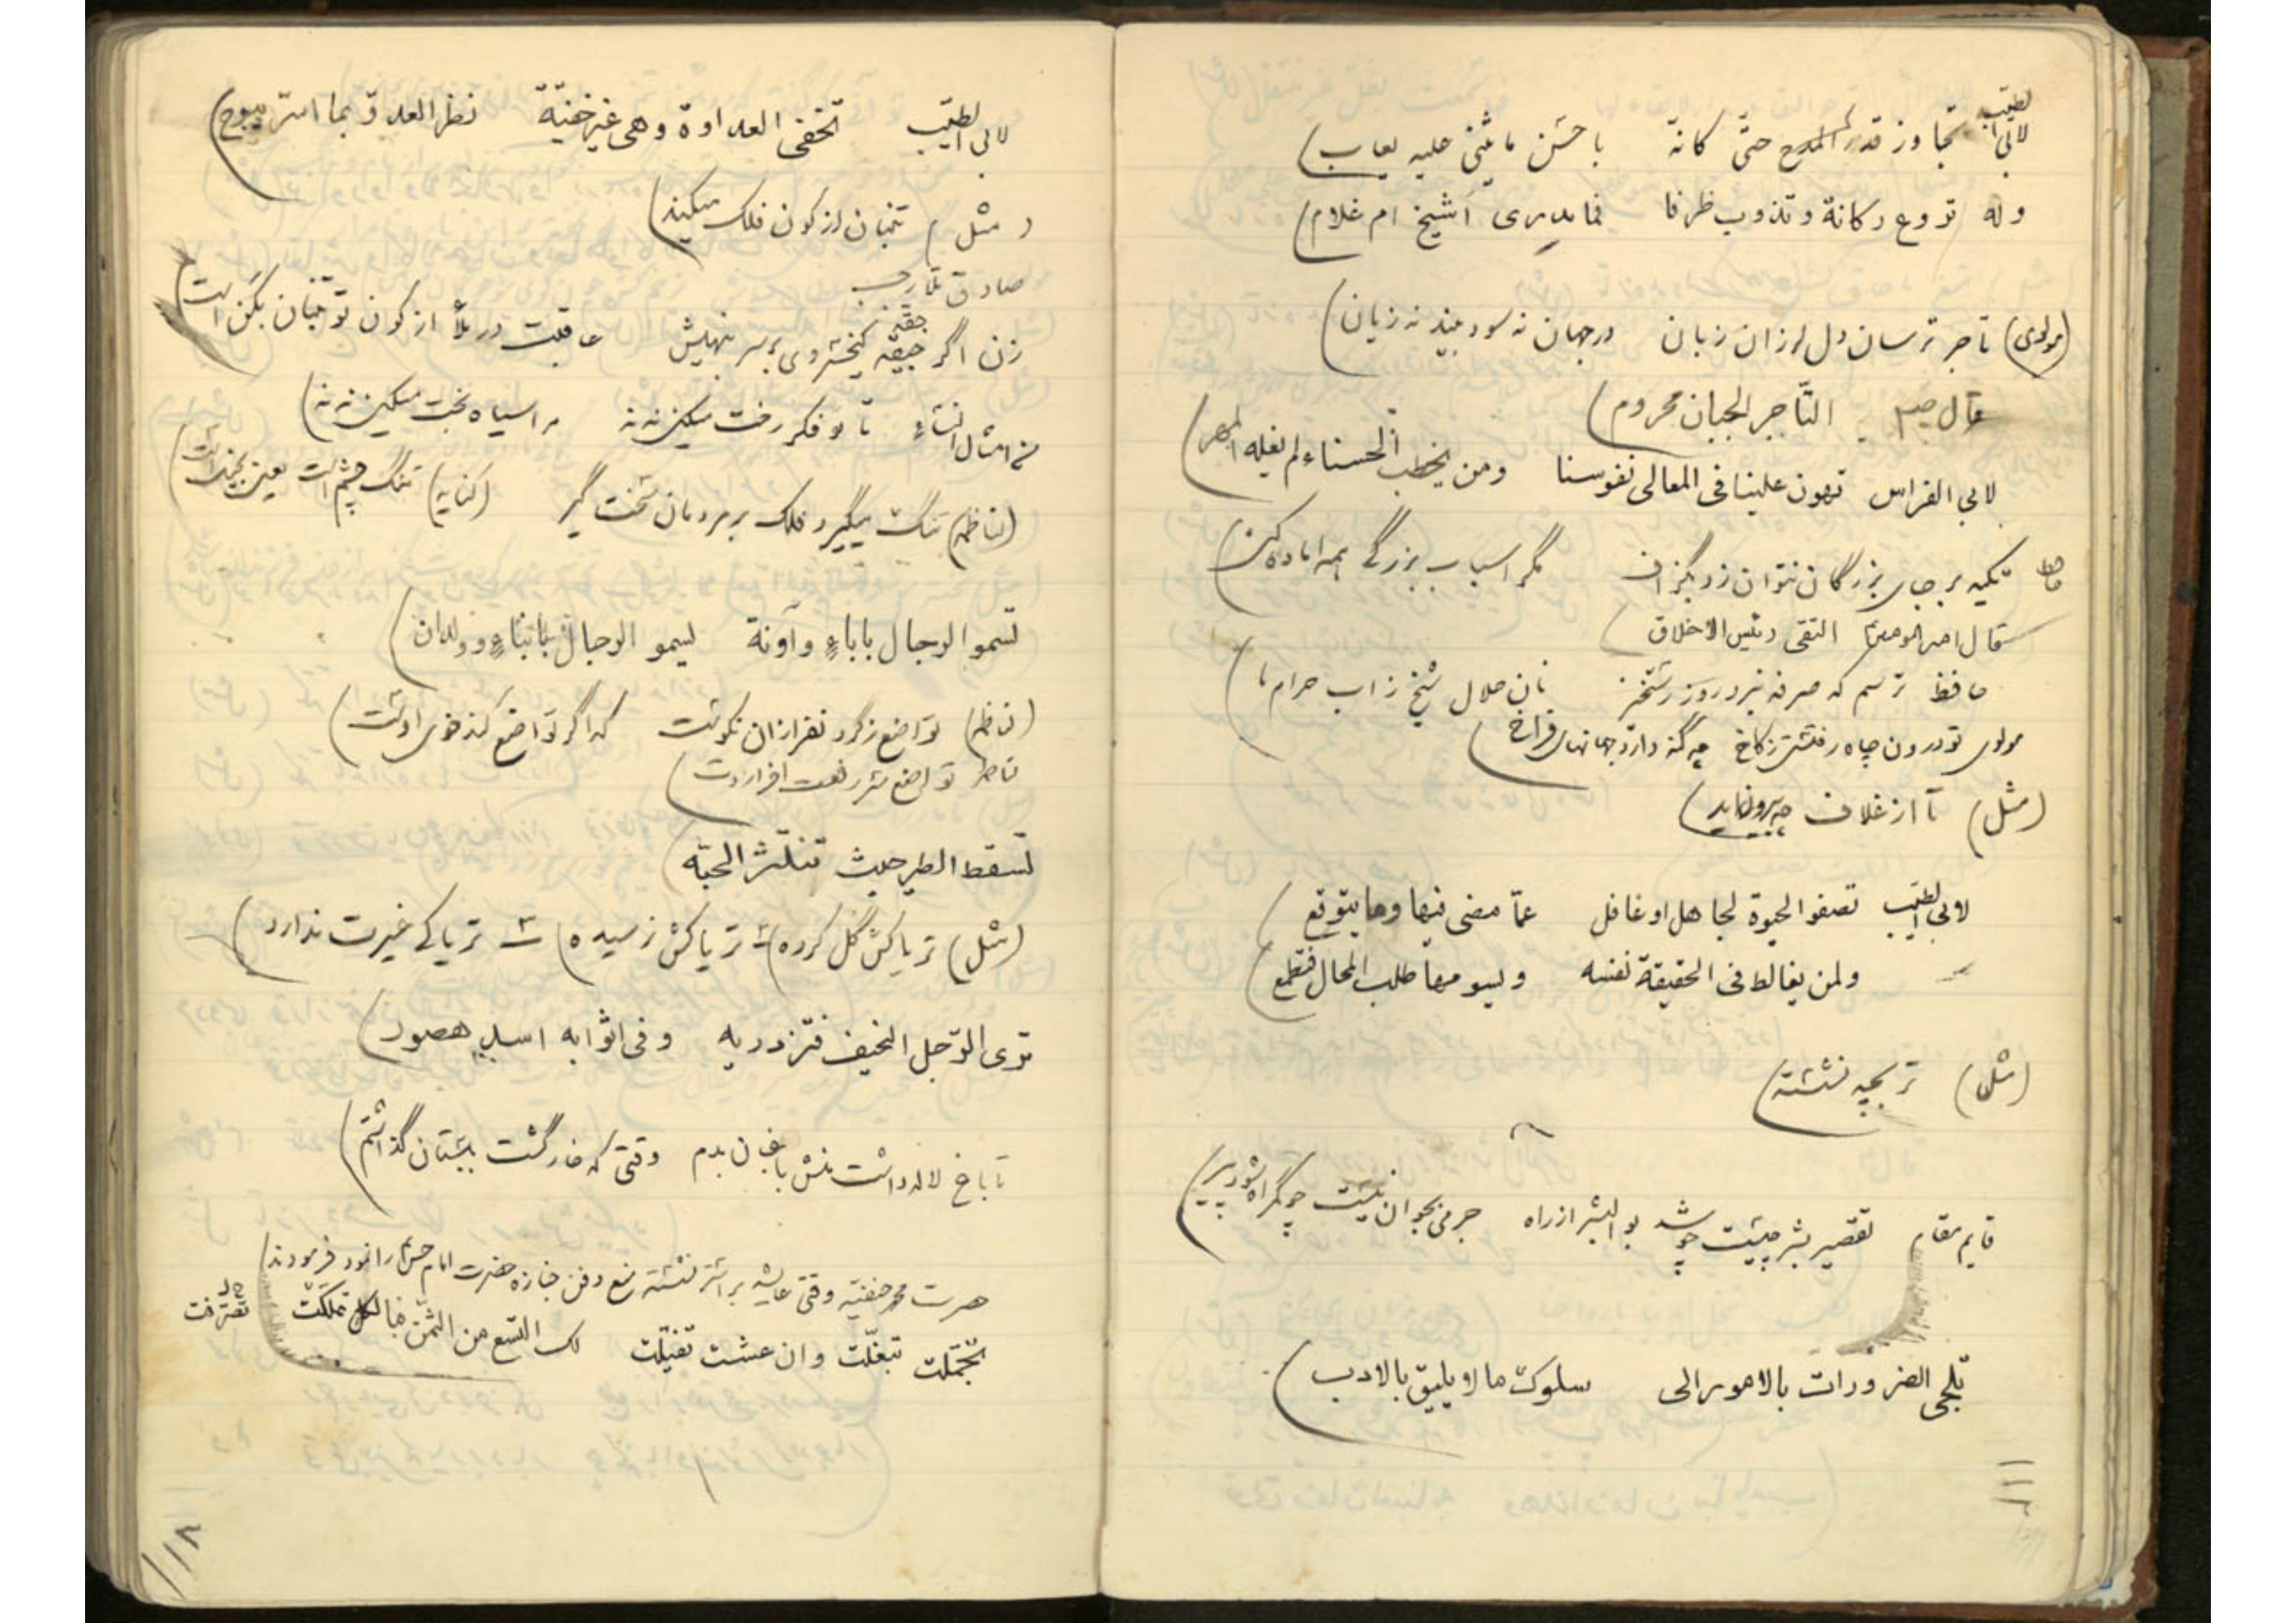 لابی الطیّب تجاوز قدر المدح حتّی کانّه باحسن ما یثنی علیه یعاب
وله تروع رکانة و تذوب ظرفا فما یدری أشیخ ام غلام
(مولوی) تاجر ترسان دل لرزان زبان در جهان نه سود بیند نه زیان
قال التّاجر الجبان محروم
لابی الفراس تهون علینا فی المعالی نفوسنا ومن یخطب الحسناء لم یغله المهر
تکیه بر جای بزرگان نتوان زد بگزاف مگر اسباب بزرگی همه اماده کنی
قال امیرالمومنین التقی رئیس الاخلاق
حافظ ترسم که صرفه نبرد روز رستخیز نان حلال شیخ زاب حرام ما
مولوی تو درون چاه رفتستی زکاخ چه گنه دارد جهانهای فراخ
(مثل) تا از غلاف چه بیرون اید
لابی الطیّب تصفو الحیوة لجاهل او غافل عمّا مضی فیها وما یتوقع
ولمن یغالط فی الحقیقة نفسه ویسومها طلب المحال فتطمع
(مثل) تربچه نشسته
قایم مقام تقصیر بشر چیست چو شد بوالبشر از راه جرمی بجوان نیست چو گمراه شود پیر
تلجی الضرورات بالامور الی سلوک ما لا یلیق بالادب
۱۱۱
لابی الطیّب تخفی العداوة وهی غیر خفیّة نظر العدوّ بما اسرّ یبوح
(مثل) تنبان از کون فلک میکند
صادق تارب
زن اگر جیقّه کیخسروی بر سر نهیش عاقبت در بلأ از کون تو تنبان بکن است
من امثال النساء تا تو فکر رخت میکنی نه نه مرا سیاه بخت میکنی نه نه
(لناظمه) تنگ میگیرد فلک بر مردمان سخت گیر (کنایه) تنگ چشم است یعنی بخیل است
تسمو الرجال باباءٍ وآونة تسمو الرجال بابناءٍ وولدان
(ناظم) تواضع ز گردنفرازان نکوست گدا گر تواضع کند خوی اوست
تواضع سر رفعت افرازدت
تسقط الطیر حیث تنتثر الحبّه
(مثل) تریاکش گل کرده تریاکش نرسیده تریاکی غیرت ندارد
تری الرّجل النحیف فتزدریه وفی اثوابه اسد هصور
تا باغ لاله داشت منش باغبان بدم وقتی که خار گشت ببستان گذاشتم
حضرت محمد حنفیّه وقتی عایشه بر استر نشسته منع دفن جنازه حضرت امام حسن را نمود فرمودند
تجمّلت تبغّلت وان عشت تفیّلت لک التسع من الثمن فبالکل تملّکت تصرّفت
۱۱۲